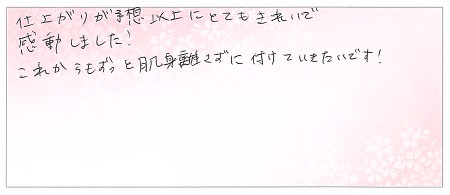 仕上がりが予想以上にとてもきれいで
感動しました!
これからもずっと肌身離さずに付けていきたいです!